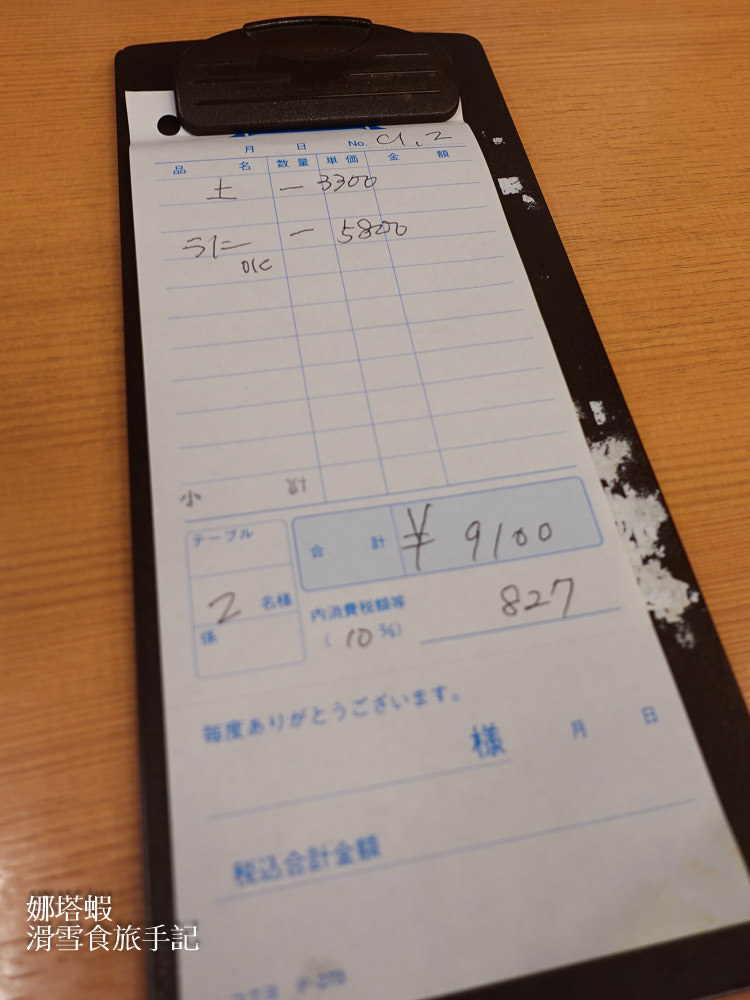 月 日 No. C1.2
品 名 数量 単価 金 額
土 一 3300
一 5800
小 計
テーブル
合 計 ¥ 9100
2 名様
係
内消費税額等 827
( 10 %)
毎度ありがとうございます。
様 月 日
税込合計金額
娜塔蝦
滑雪食旅手記